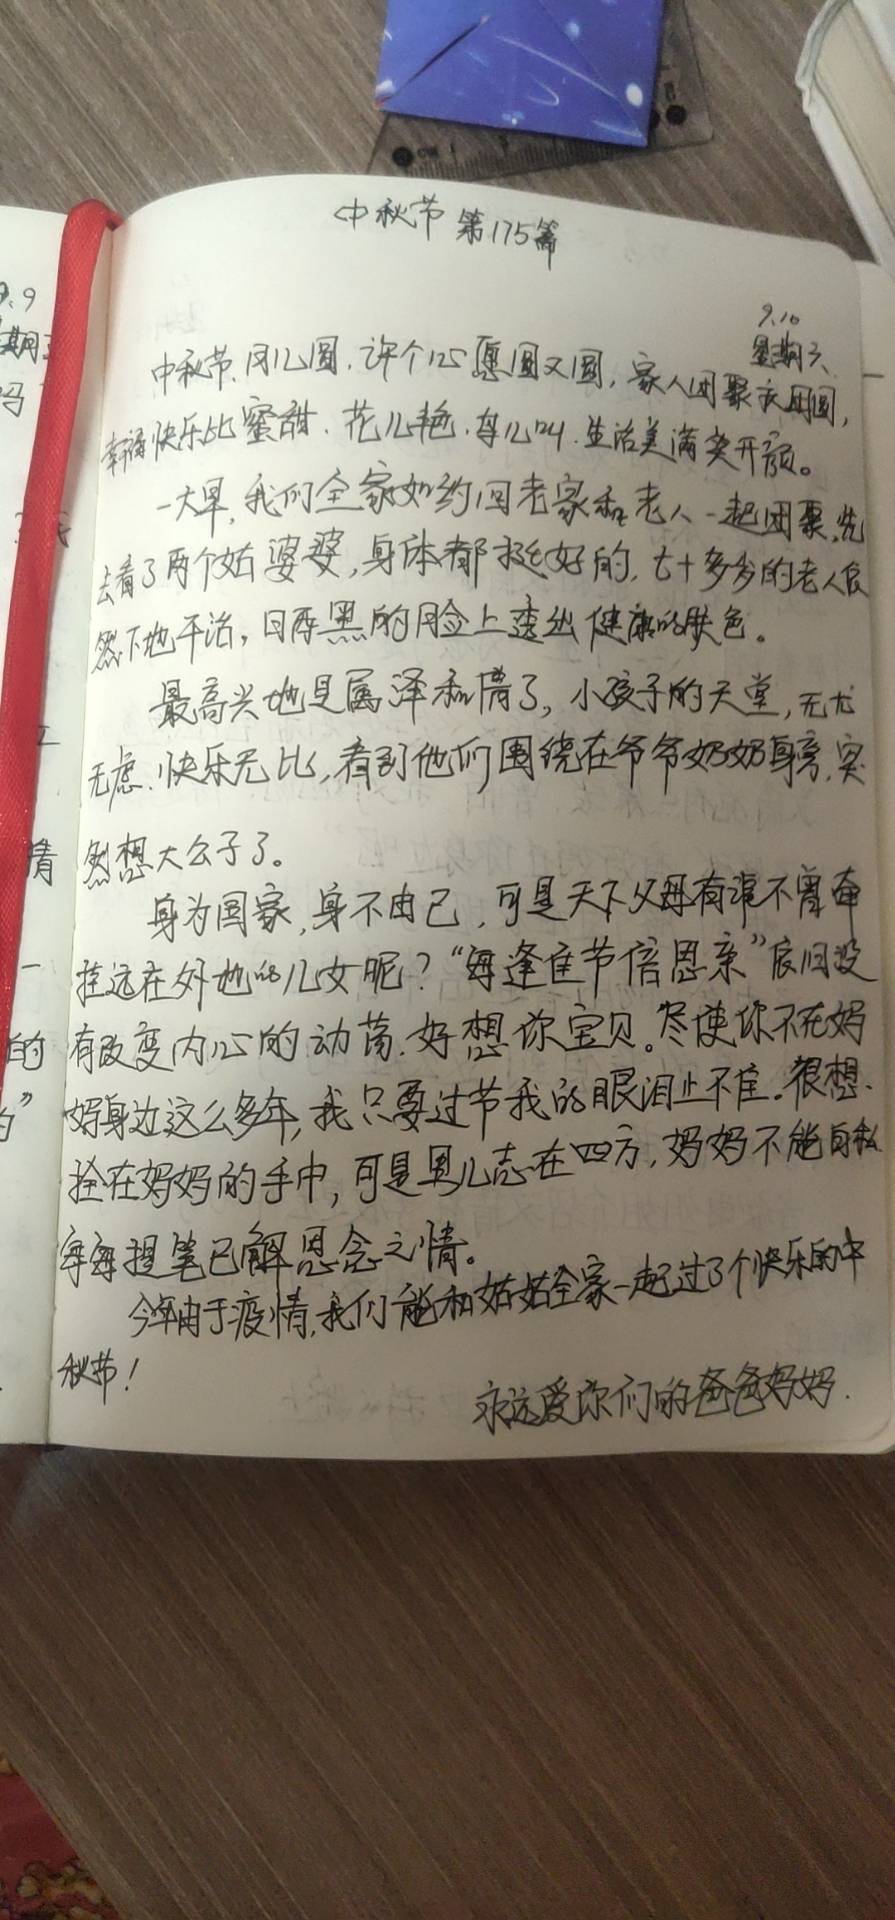 中秋节 第175篇
9.10
星期六
中秋节,月儿圆,许个心愿圆又圆,家人团聚庆团圆,
幸福快乐比蜜甜,花儿艳,鸟儿叫,生活美满笑开颜。
一大早,我们全家如约回老家和老人一起团聚,先
去看了两个姑婆婆,身体都挺好的,七十多岁的老人依
然下地干活,黝黑的脸上透出健康的肤色。
最高兴地是属泽和倩了,小孩子的天堂,无忧
无虑,快乐无比,看到他们围绕在爷爷奶奶身旁,突
然想大公子了。
身为国家,身不由己,可是天下父母有谁不曾牵
挂远在外地的儿女呢?“每逢佳节倍思亲”依旧没
有改变内心的动荡,好想你宝贝。尽使你不在妈
妈身边这么多年,我只要过节我的眼泪止不住。很想
拴在妈妈的手中,可是男儿志在四方,妈妈不能自私
每每提笔已解思念之情。
今年由于疫情,我们能和姑姑全家一起过了个快乐的中
秋节!
永远爱你们的爸爸妈妈.
9.9
星期五
吗
倩
一
的
”